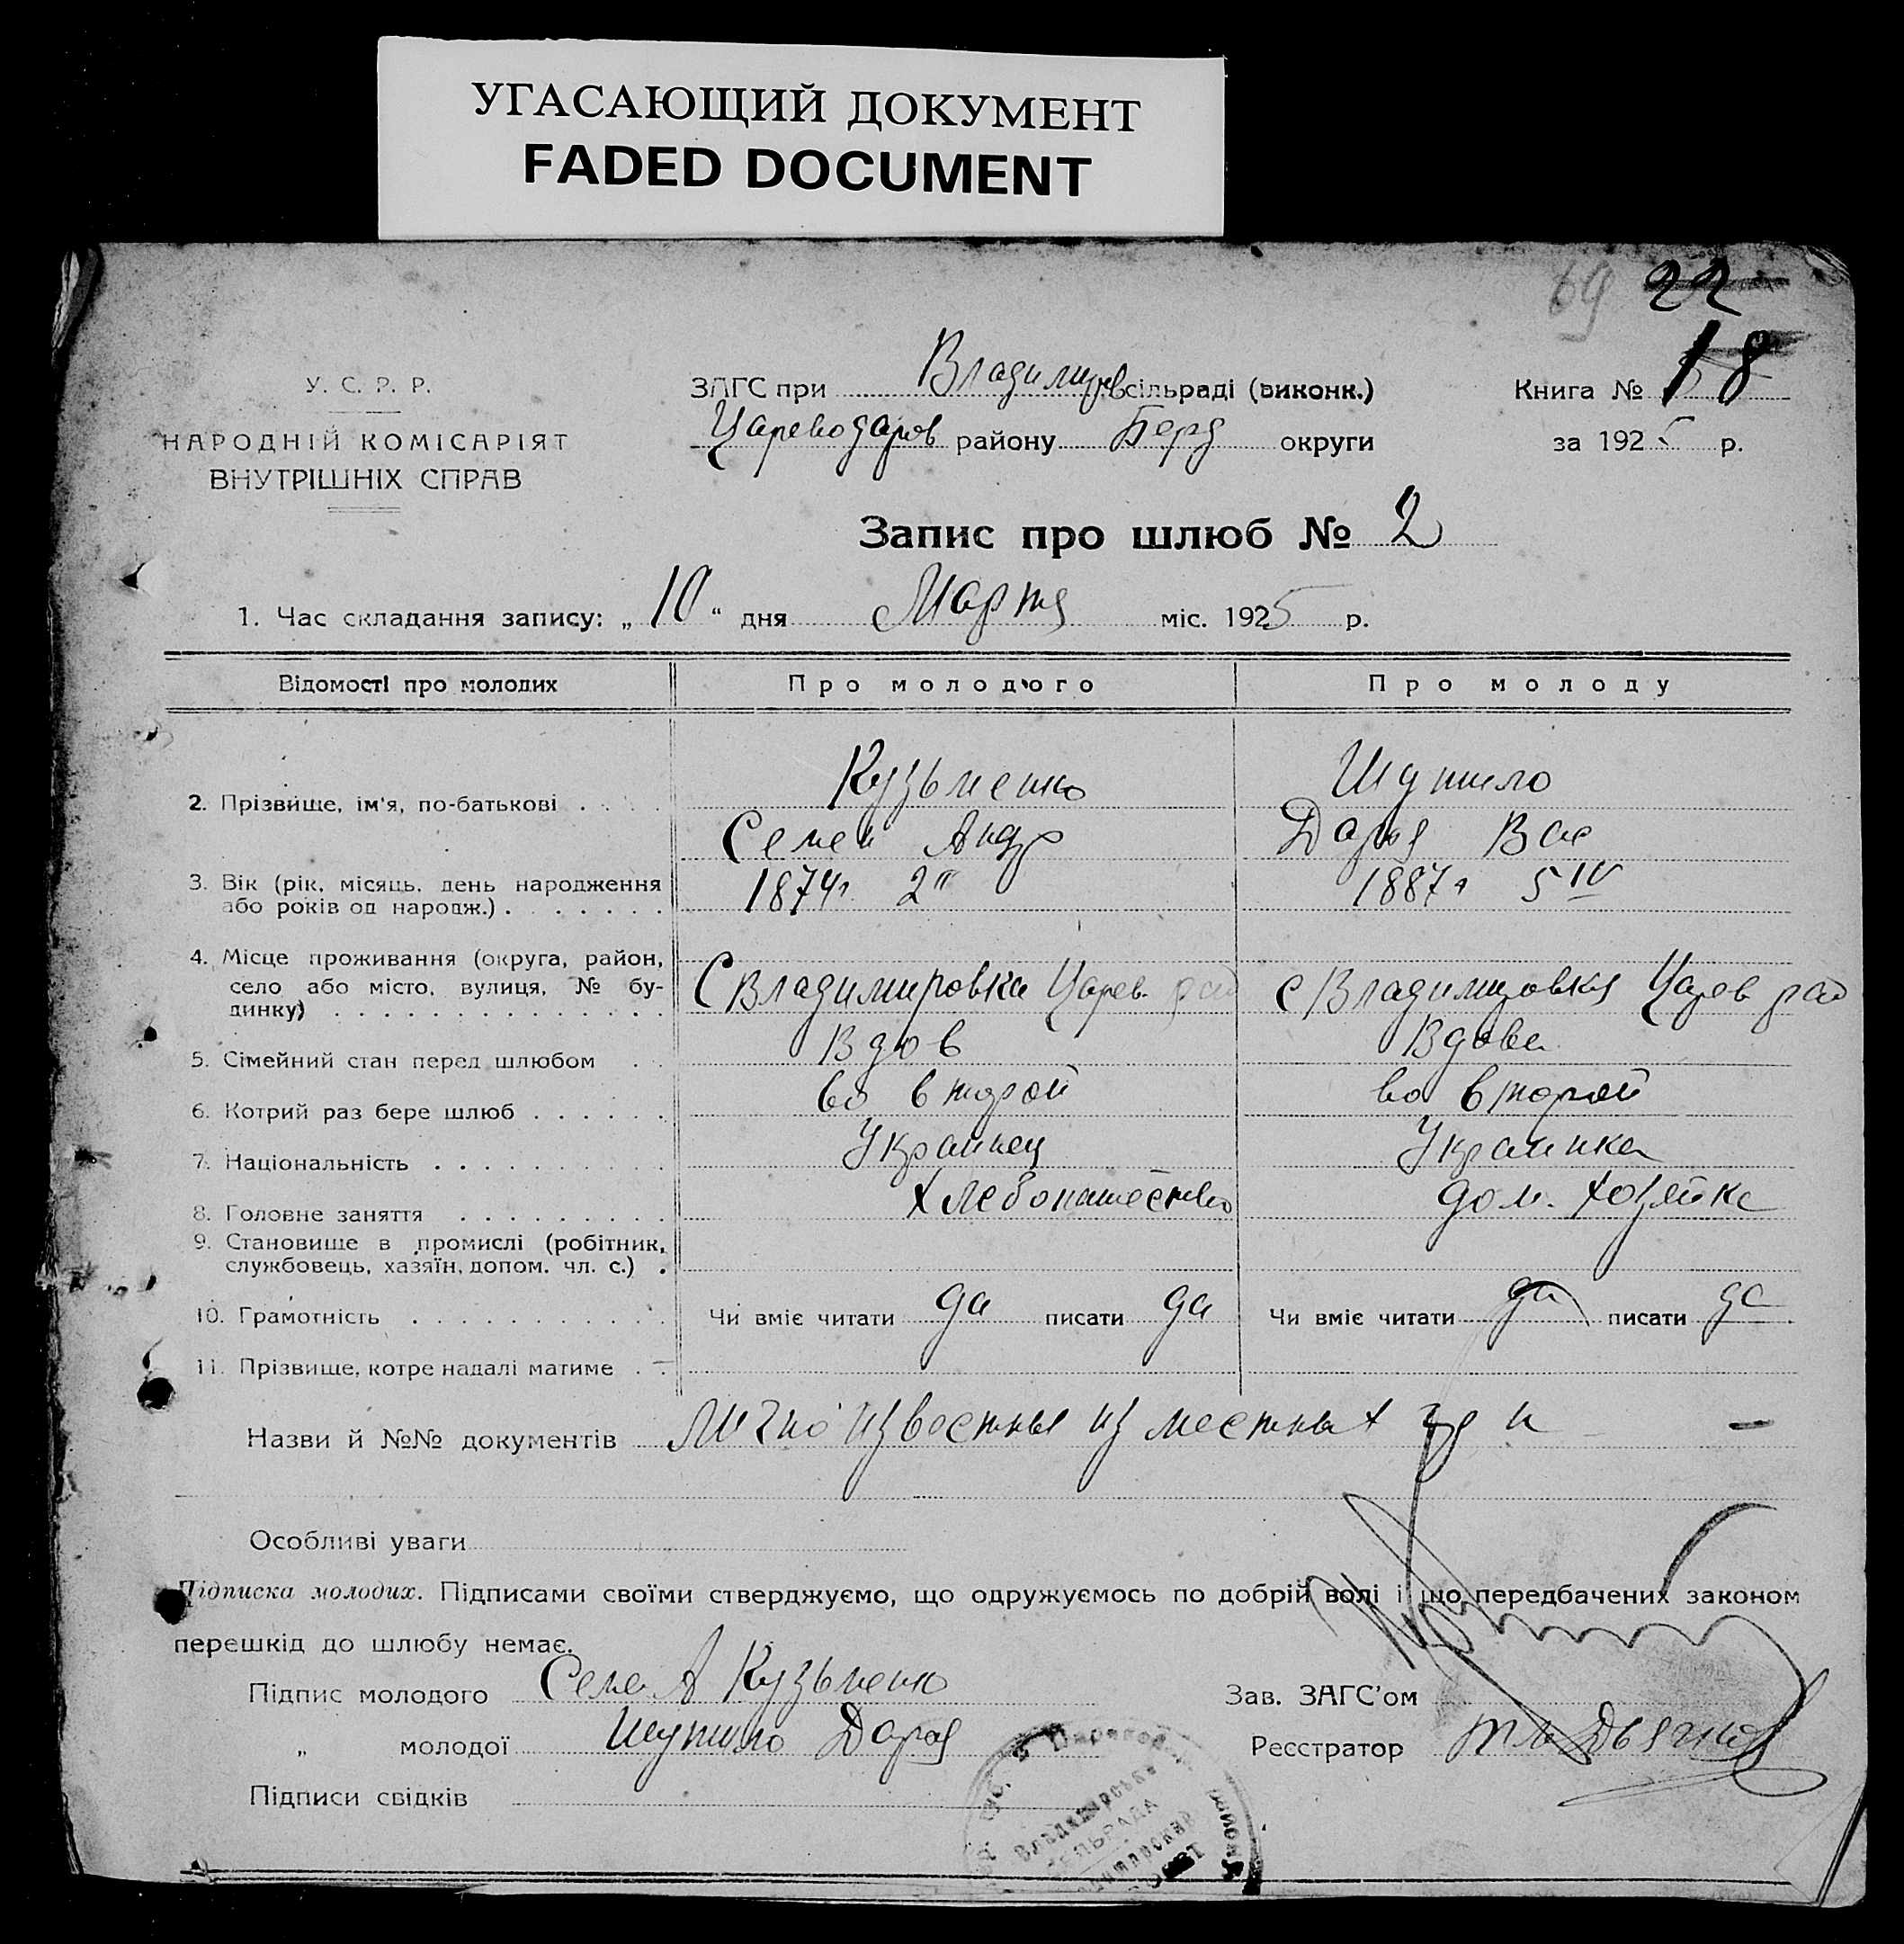 УГАСАЮЩИЙ ДОКУМЕНТ
FADED DOCUMENT
69 22
У. С. Р. Р.
НАРОДНІЙ КОМІСАРІЯТ
ВНУТРІШНІХ СПРАВ
ЗАГС при Владимиров сільраді (виконк.)
Цареводаров району Берд округи
Книга № 18
за 1925 р.
Запис про шлюб № 2
1. Час складання запису: „ 10 “ дня Марта міс. 1925 р.
Відомості про молодих Про молодого Про молоду
2. Прізвище, ім'я, по-батькові . . Кузьменко Шутило
Семен Андр Дарья Вас
3. Вік (рік, місяць, день народження 1874г 2 II 1887г 5 IV
або років од народж.) . . . . . . .
4. Місце проживання (округа, район,
село або місто, вулиця, № бу- С Владимировка Царев рай с Владимировка Царев рай
динку) . . . . . . . . . . . . . .
5. Сімейний стан перед шлюбом . . Вдов Вдова
6. Котрий раз бере шлюб . . . . . . во второй во второй
7. Національність . . . . . . . . . . Украинец Украинка
8. Головне заняття . . . . . . . . . Хлебопашество дом. хозяйка
9. Становище в промислі (робітник,
службовець, хазяїн, допом. чл. с.) .
10. Грамотність . . . . . . . . . . . Чи вміє читати да писати да Чи вміє читати да писати да
11. Прізвище, котре надалі матиме . .
Назви й №№ документів Лично известны из местных —
Особливі уваги
Підписка молодих. Підписами своїми стверджуємо, що одружуємось по добрій волі і що передбачених законом
перешкід до шлюбу немає.
Підпис молодого Семен А Кузьменко
„ молодої Шутило Дарья
Підписи свідків
Зав. ЗАГС'ом
Реєстратор